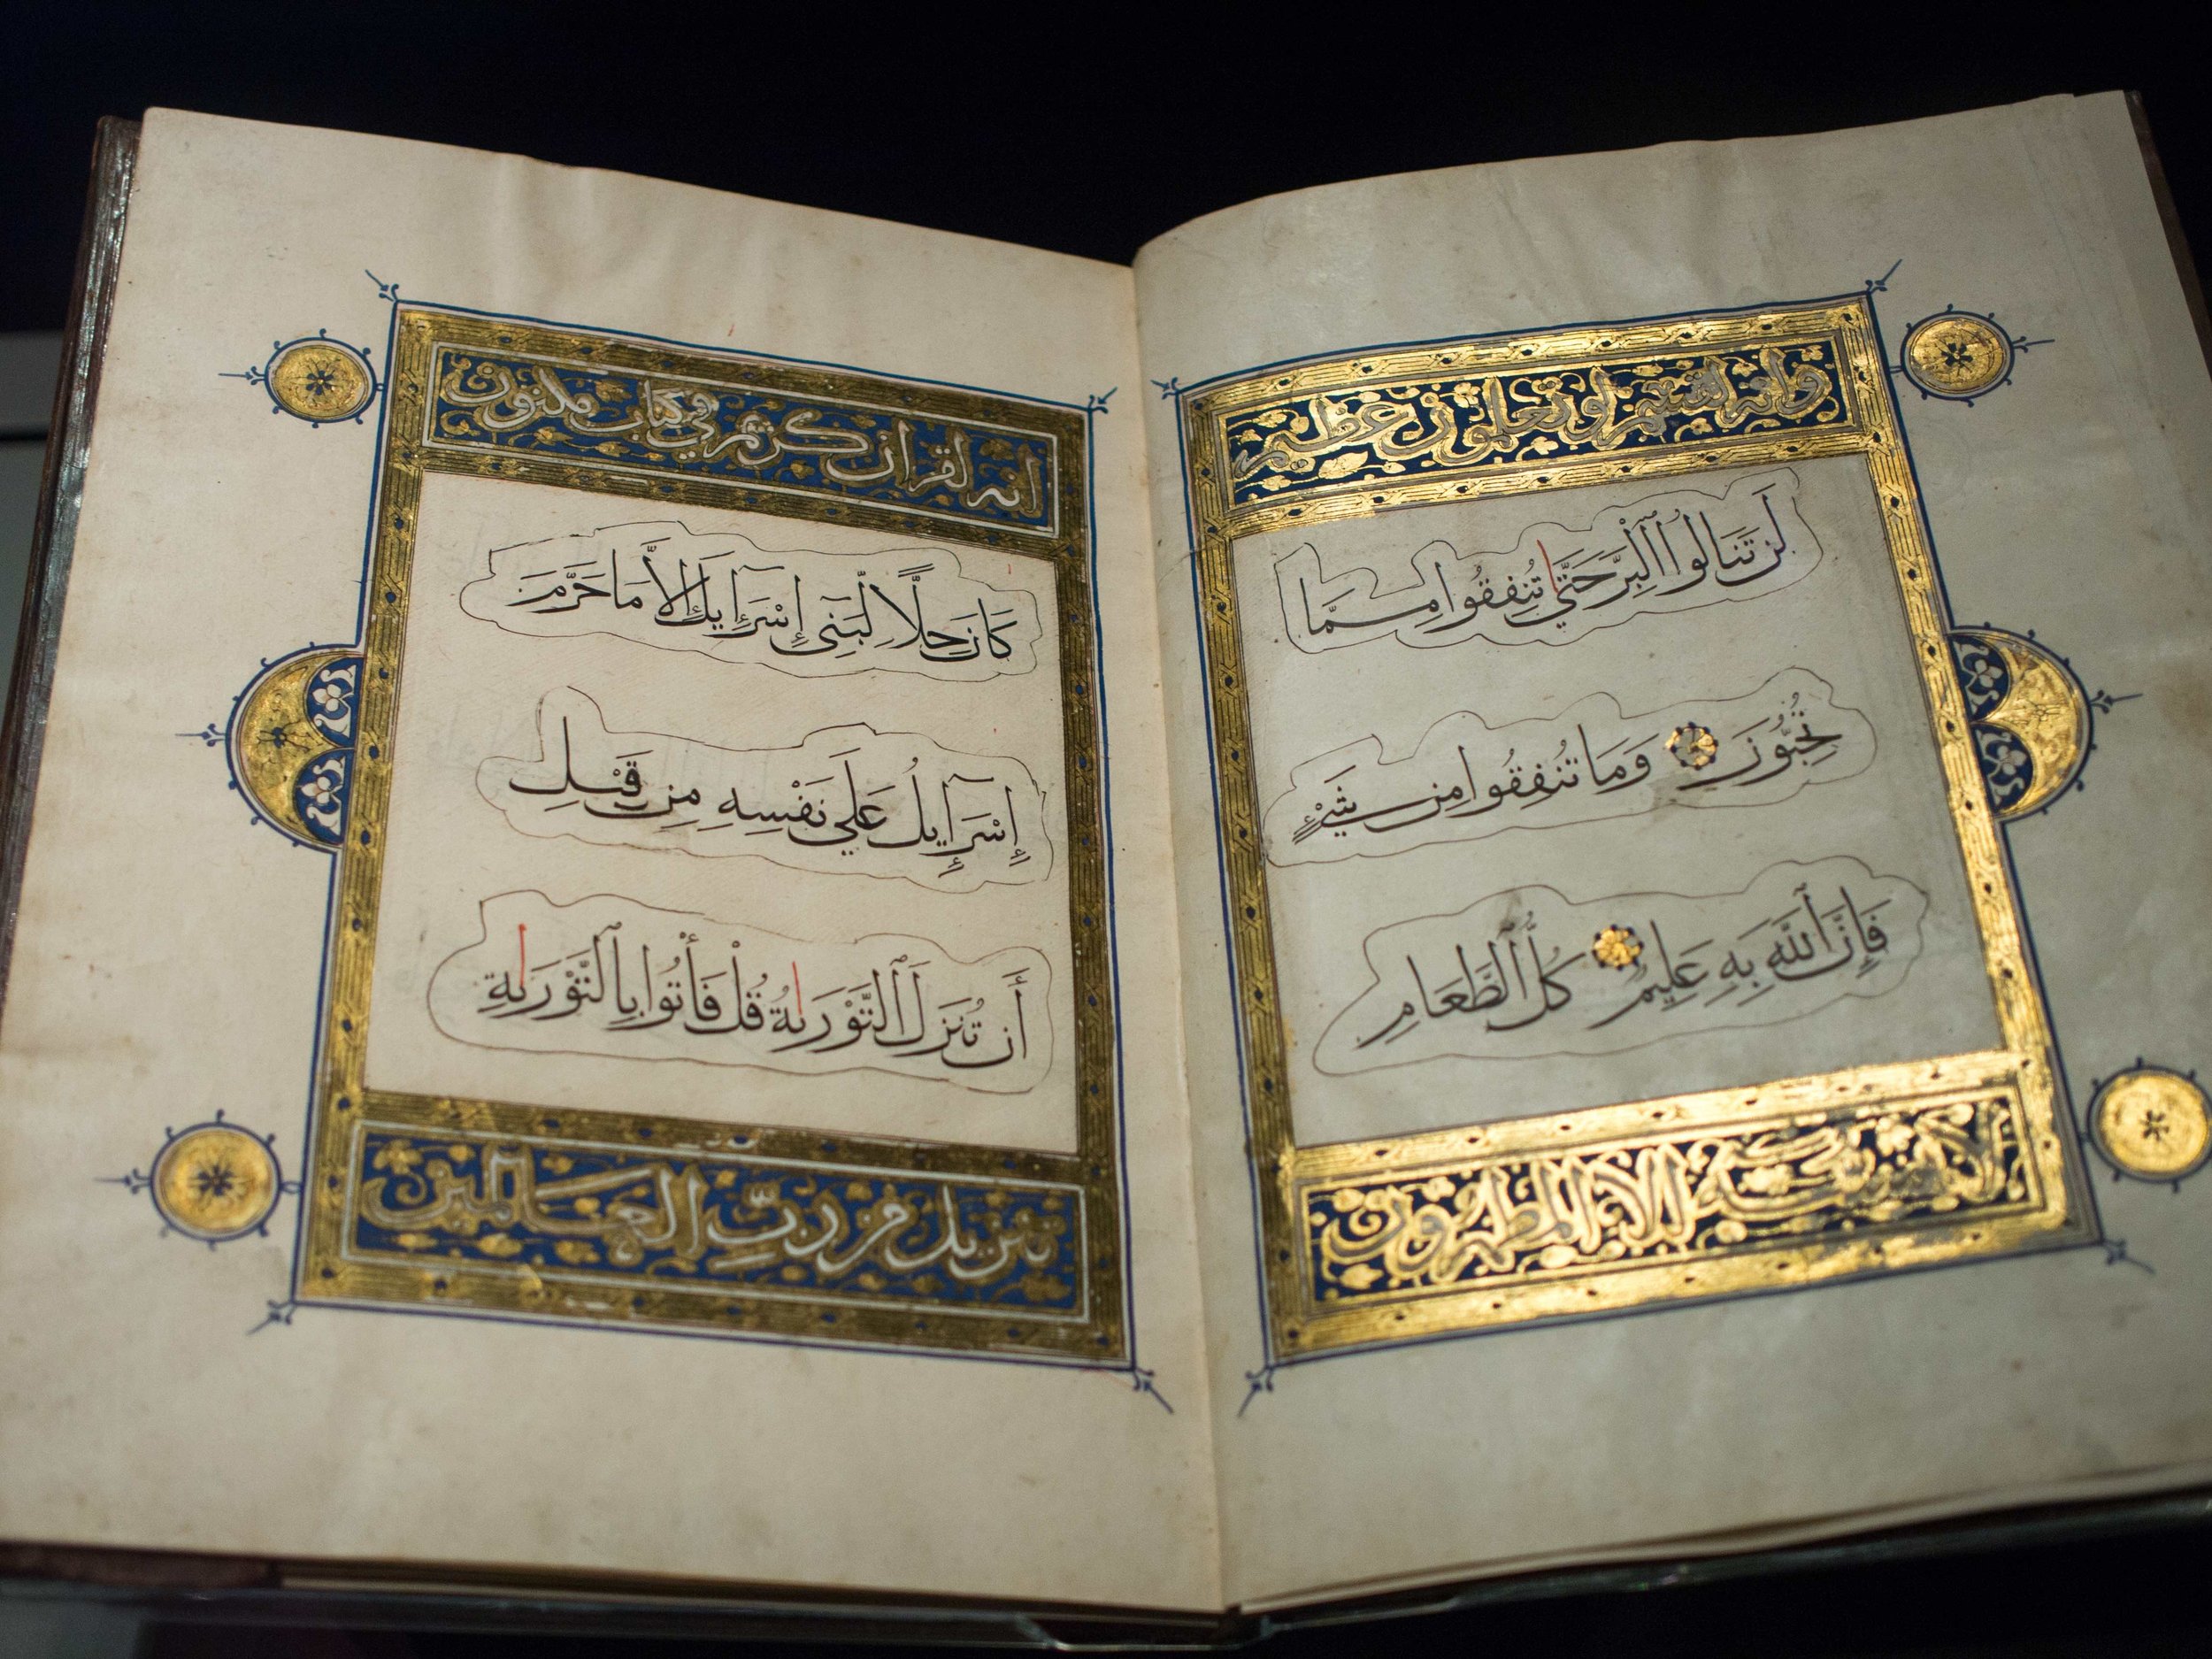 وانه لقسم لو تعلمون عظيم
لَن تَنَالُوا ٱلْبِرَّ حَتَّىٰ تُنفِقُوا مِمَّا
تُحِبُّونَ وَمَا تُنفِقُوا مِن شَيْءٍ
فَإِنَّ ٱللَّهَ بِهِ عَلِيمٌ كُلُّ ٱلطَّعَامِ
لا يمسه إلا المطهرون
انه لقرآن كريم في كتاب مكنون
كَانَ حِلًّا لِّبَنِي إِسْرَآءِيلَ إِلَّا مَا حَرَّمَ
إِسْرَآءِيلُ عَلَى نَفْسِهِ مِن قَبْلِ
أَن تُنَزَّلَ ٱلتَّوْرَىٰةُ قُلْ فَأْتُوا بِٱلتَّوْرَىٰةِ
تنزيل من ربّ العالمين